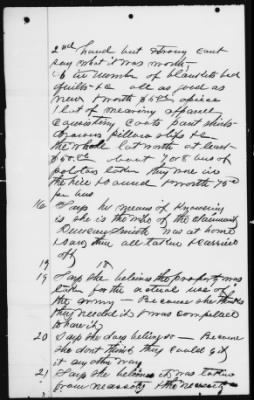 2nd hand but strong cant
say what it was worth
6 in number of blankets bed
quilts &c all as good as
new & worth $5.00 apiece
1 lot of wearing apparel
Consisting Coats pant shirts
pillow slips &c
the whole lot worth at least
$ bout 7 or 8 bus of
potatoes taken they were in
the hill & worth
per bus
16 Says her means of Knowing
is she is the wife of the claimant
was at home
& saw them all taken & carried
off
19 18
19 Says she believes the property was
taken for the actual use of
the army — Because she thinks
they needed it & was compelled
to have it
20 Says she does believe so — Because
she dont think they could get
it any other way
21 Says she believes it was taken
from necessity & the necessity